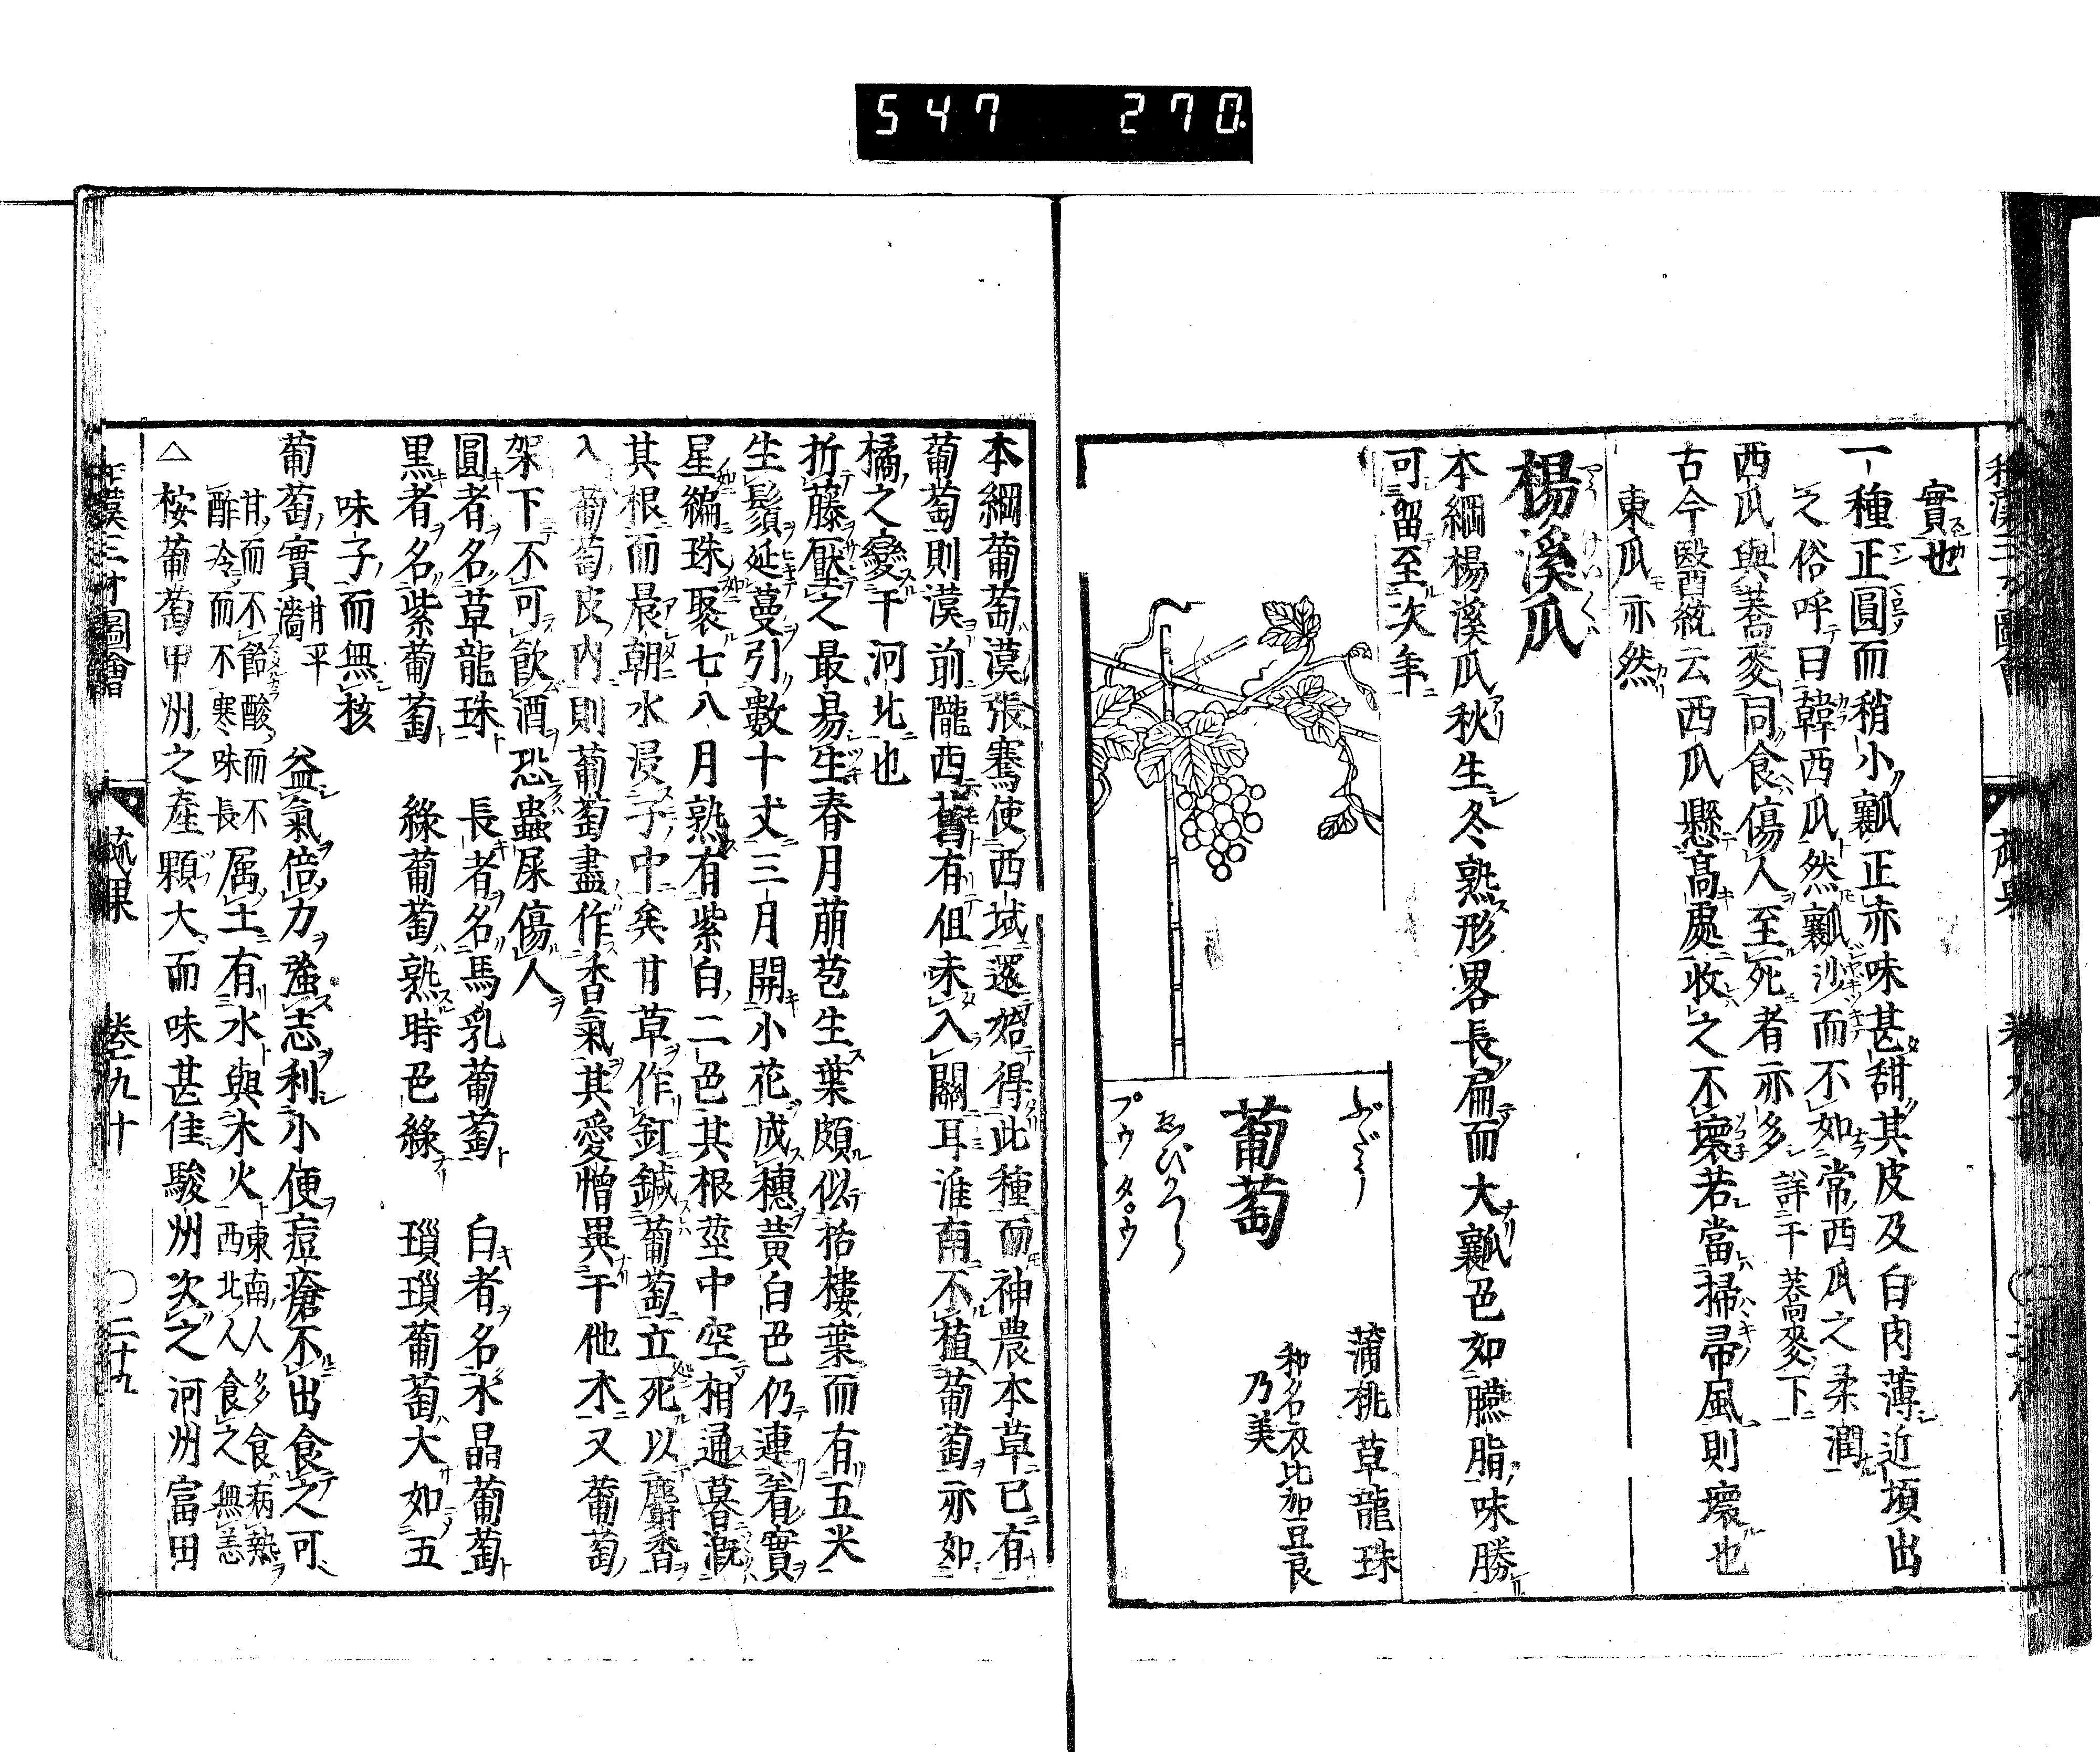 547 270
實也
一種正圓而稍小瓤正赤味甚甜其皮及白肉薄近頃出
之俗呼曰韓西瓜然瓤沙而不如常西瓜之柔潤
西瓜與蕎麥同食傷人至死者亦多詳于蕎麥下
古今醫統云西瓜懸高處收之不壞若當掃帚風則壞也
東瓜亦然
楊溪瓜
本綱楊溪瓜秋生冬熟形畧長扁而大瓤色如臙脂味勝
可留至次年
ぶだう
葡萄
ゑびかづら
プウ タ゚ウ
蒲桃 草龍珠
和名衣比加豆良
乃美
本綱葡萄漢張騫使西域還始得此種而神農本草已有
葡萄則漢前隴西舊有但未入關耳淮南不植葡萄亦如
橘之變于河北也
折藤壓之最易生春月萠苞生葉頗似栝樓葉而有五尖
生鬚延蔓引數十丈三月開小花成穗黃白色仍連着實
星編珠聚七八月熟有紫白二色其根莖中空相通暮漑
其根而晨朝水浸子中矣甘草作釘鍼葡萄立死以麝香
入葡萄皮内則葡萄盡作香氣其愛憎異于他木又葡萄
架下不可飮酒恐蟲屎傷人
圓者名草龍珠 長者名馬乳葡萄 白者名水晶葡萄
黒者名紫葡萄 綠葡萄熟時色綠 瑣瑣葡萄大如五
味子而無核
葡萄實 甘平
濇 益氣倍力強志利小便痘瘡不出食之可
甘而不飴酸而不
酢冷而不寒味長属土有水與木火東南人多食病熱
西北人食之無恙
△ 桉葡萄甲州之產顆大而味甚佳駿州次之河州富田
和漢三才圖會 蓏果 卷九十 〇二十九